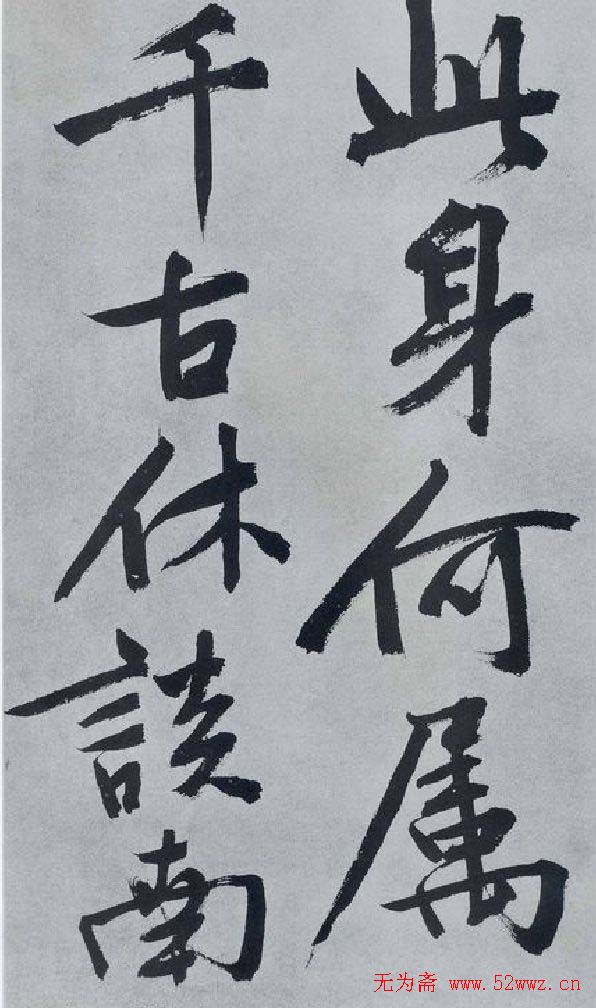 此身何属
千古休談南
无为斋 www.52wwz.cn